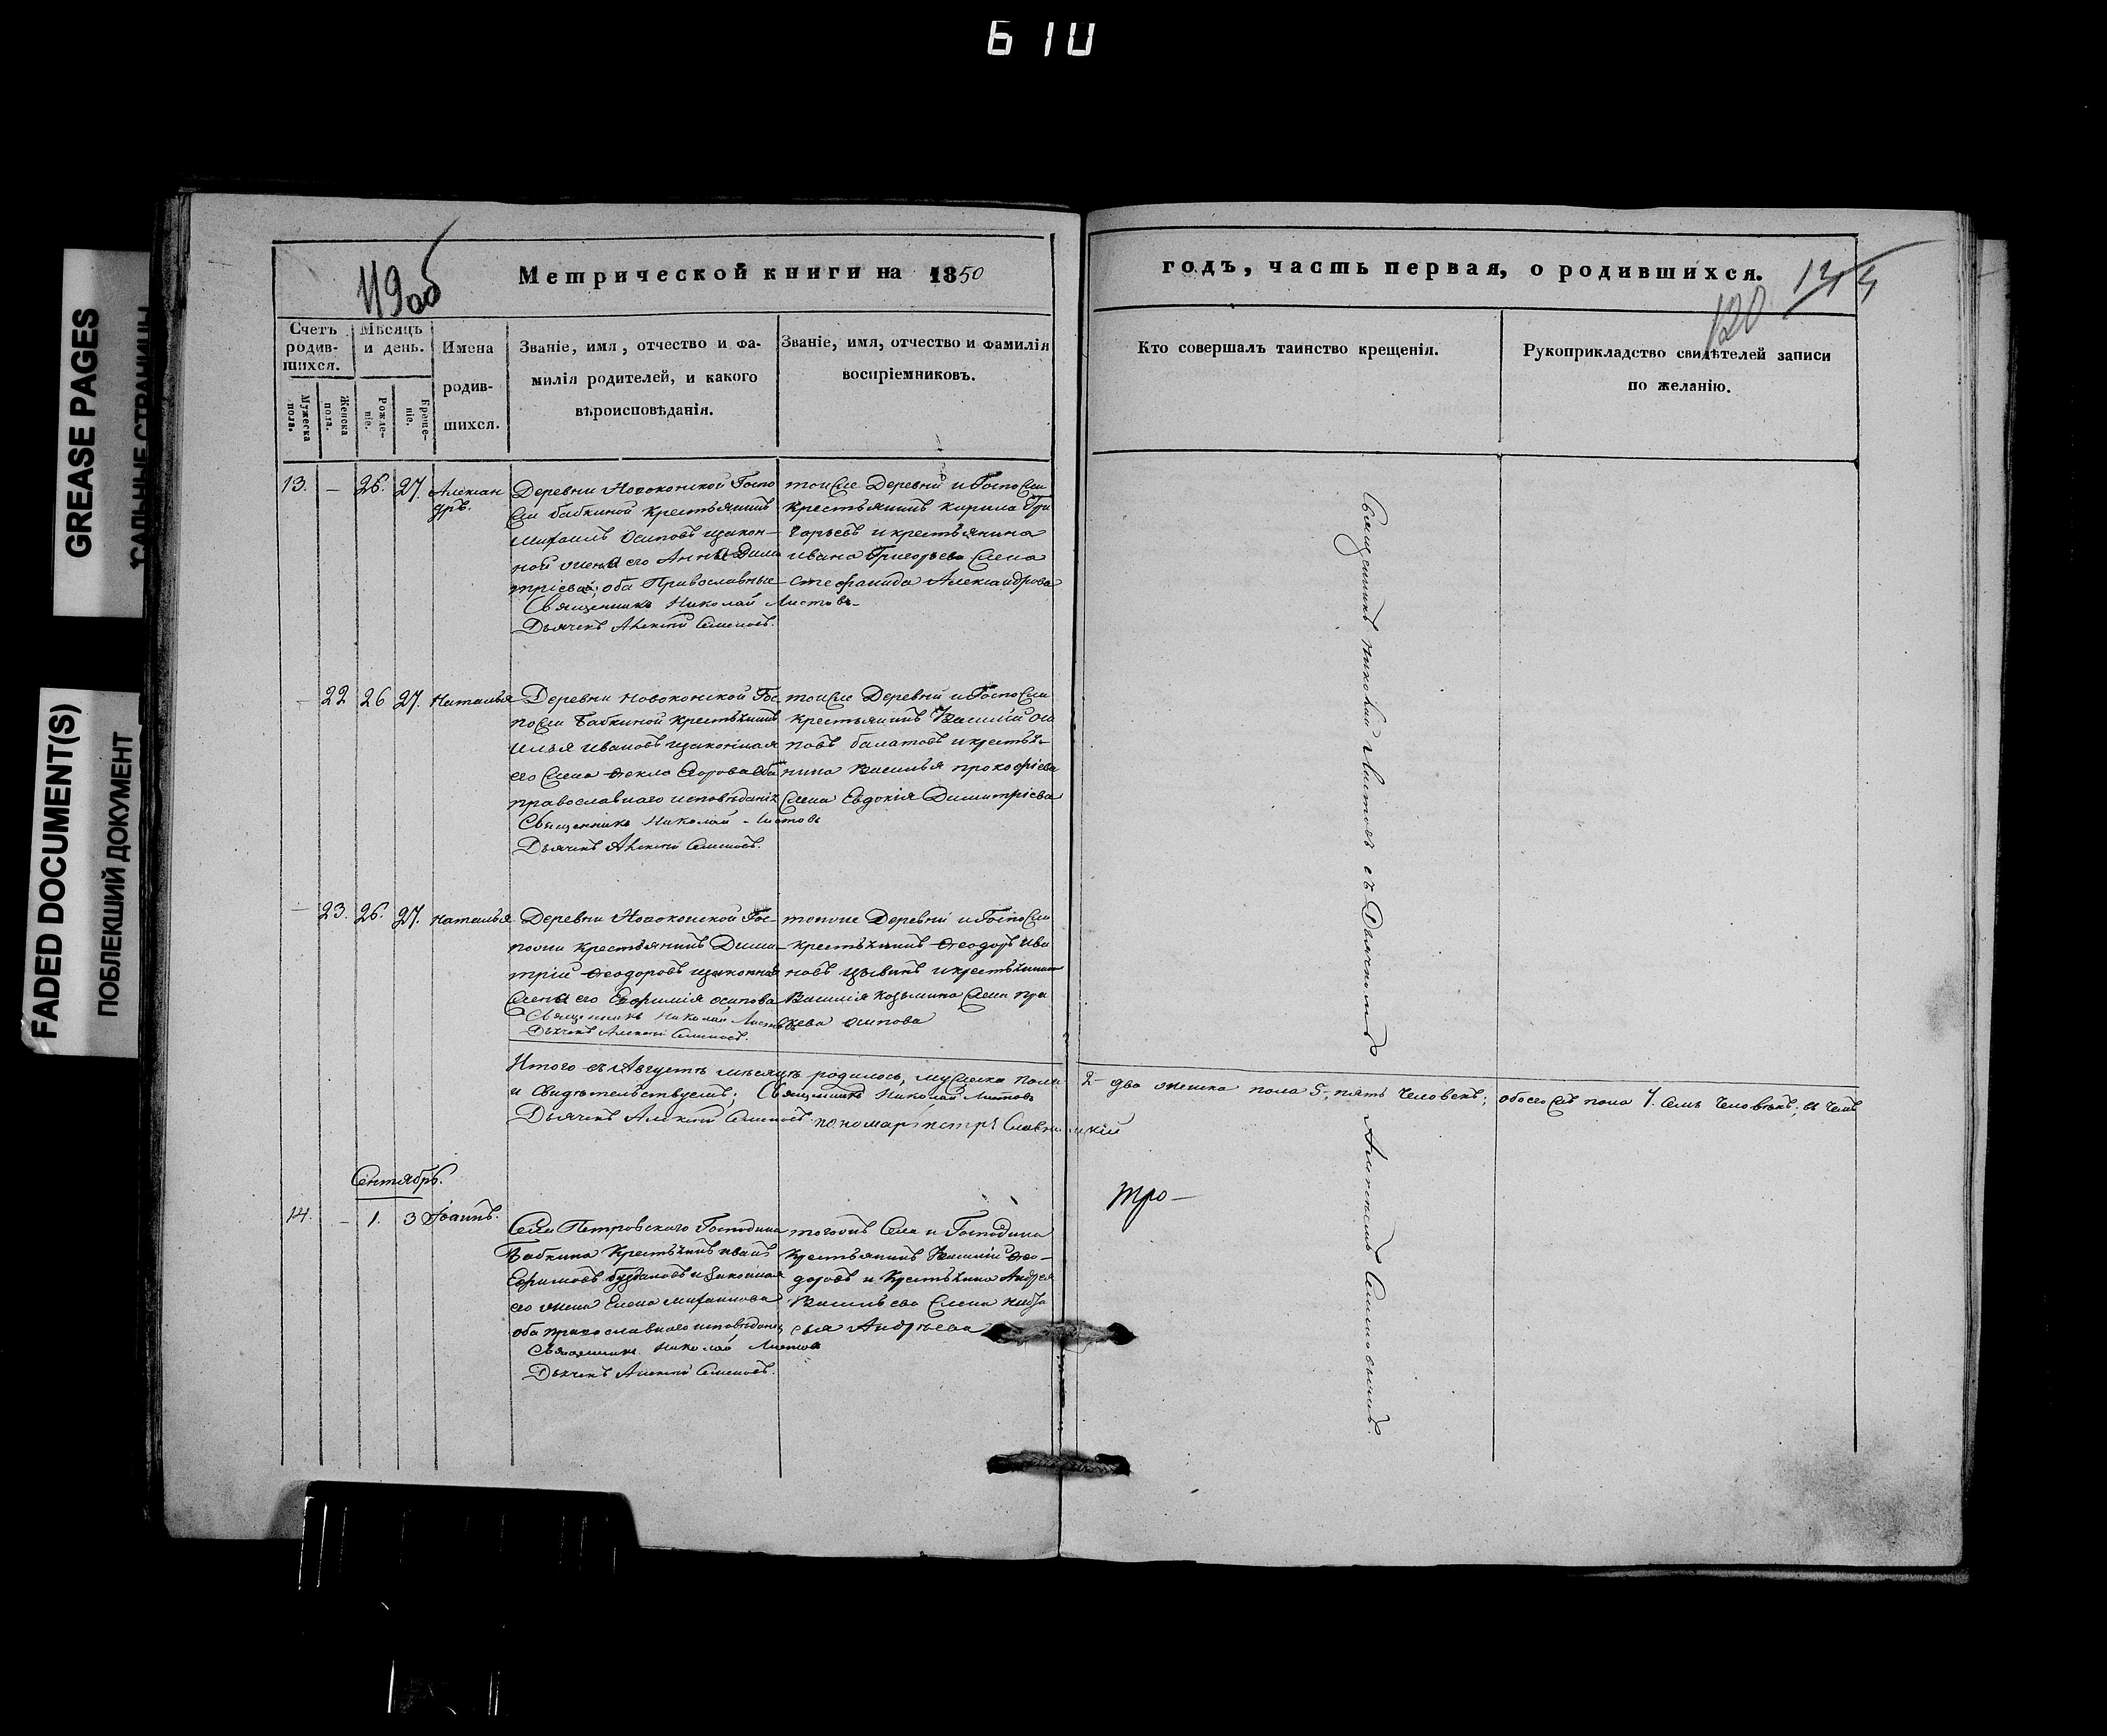 610
GREASE PAGES
САЛЬНЫЕ СТРАНИЦЫ
FADED DOCUMENT(S)
ПОБЛЕКШИЙ ДОКУМЕНТ
119об
Метрической книги на 1850
годъ, часть первая, о родившихся.
120
Счетъ родившихся.
Мужеска пола.
Женска пола.
Мѣсяцъ и день.
Рожденіе.
Крещеніе.
Имена родившихся.
Званіе, имя, отчество и фамилія родителей, и какого вѣроисповѣданія.
Званіе, имя, отчество и фамилія воспріемниковъ.
Кто совершалъ таинство крещенія.
Рукоприкладство свидѣтелей записи по желанію.
13. — 26. 27. Алексан
дръ.
Деревни Новоконской Госпо
жи бабкиной Крестьянинъ
Михаилъ Осиповъ изакон—
ной жена его Анна Дими
тріева; оба Православные
Священникъ Николай Листовъ
Дьячекъ Алексій Семеновъ.
тоиже Деревни и Госпожи
Крестьянинъ Кирила Гри
горьевъ и крестьянина
Ивана Григорьева жена
Стефанида Александрова
— 22 26 27. Наталья
Деревни Новоконской Гос
пожи Бабкиной Крестьянинъ
Илья Ивановъ изаконная
его жена Ѳекла оба
православнаго исповѣданія
Священникъ Николай Листовъ
Дьячекъ Алексій Семеновъ.
тоиже Деревни и Госпожи
Крестьянинъ Василій Оси
повъ икрестья
нина Василья Прокофіева
жена Евдокія Димитріева
— 23. 26. 27. Наталья
Деревни Новоконской Гос—
пожи Крестьянинъ Дими—
трій Ѳеодоровъ изаконная
жена его Евфимія Осипова
Священникъ Николай Листовъ
Дьячекъ Алексій Семеновъ.
тоиже Деревни и Госпожи
Крестьянинъ Ѳеодоръ Ива
новъ икрестьянина
Василія Козьмина жена
Осипова
Итого въ Августѣ мѣсяцѣ родилось, мужеска пола 2- два женска пола 5, пять человекъ; обоего пола 7. семь человѣкъ; въ чемъ
и свидѣтельствуемъ; Священникъ Николай Листовъ
Дьячекъ Алексій Семеновъ пономарь петръ
Сентябрь.
14. — 1. 3 Іоаннъ.
Села Петровскаго Господина
Бабкина Крестьянинъ Иванъ
Ефимовъ изаконная
его жена Елена Михаилова
оба православнаго исповѣданія
Священникъ Николай Листовъ
Дьячекъ Алексій Семеновъ.
тогожъ Села и Господина
Крестьянинъ Василій Ѳео—
доровъ и Крестьянина Андрея
Васильева жена
Андрѣева
Священникъ Николай Листовъ съ Дьячкомъ Алексѣемъ Семеновымъ.